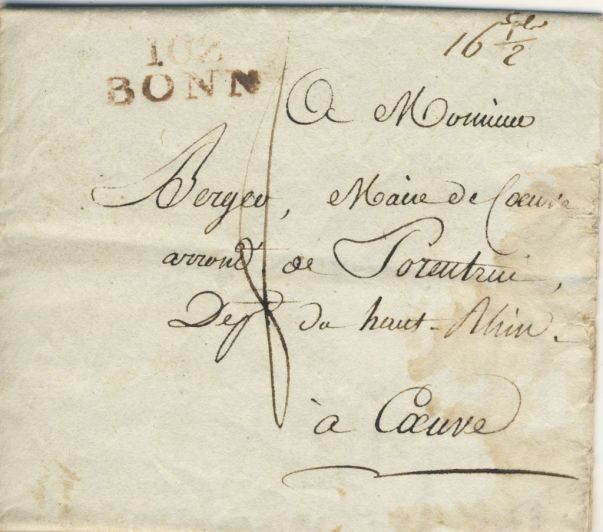 102
BONN
16 1/2
A Monsieur
Berger, Maire de Cœuve
arrond.t de Porentrui,
Dep.t du haut-Rhin.
à Cœuve